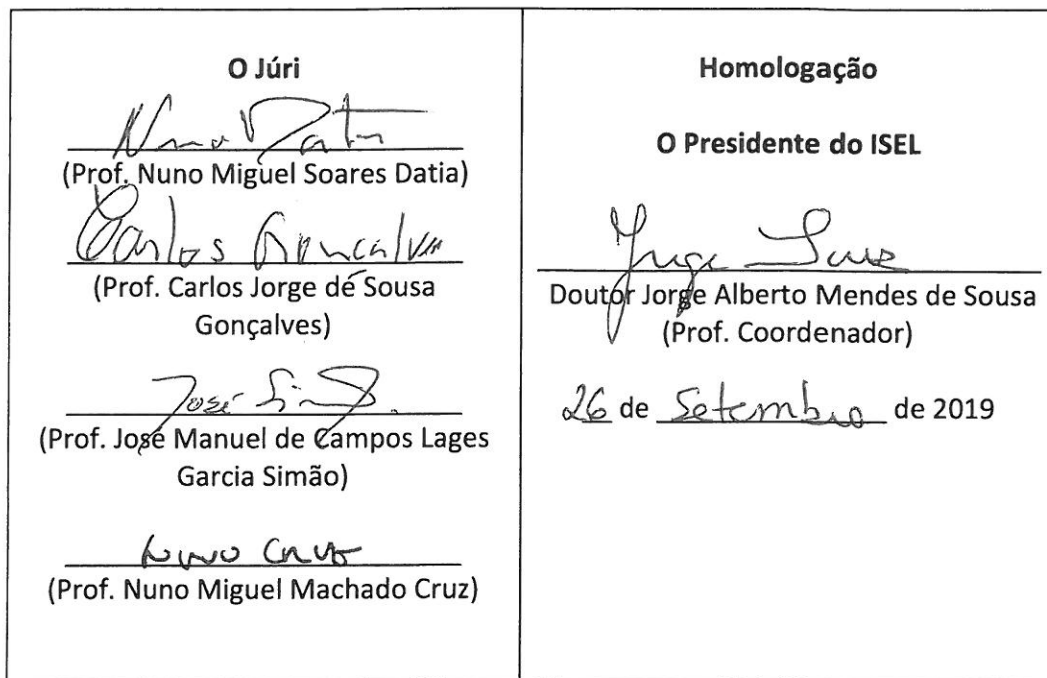 O Júri
Nuno Datia
(Prof. Nuno Miguel Soares Datia)
Carlos Gonçalves
(Prof. Carlos Jorge de Sousa
Gonçalves)
José Simão
(Prof. José Manuel de Campos Lages
Garcia Simão)
Nuno Cruz
(Prof. Nuno Miguel Machado Cruz)
Homologação
O Presidente do ISEL
Jorge Sousa
Doutor Jorge Alberto Mendes de Sousa
(Prof. Coordenador)
26 de Setembro de 2019